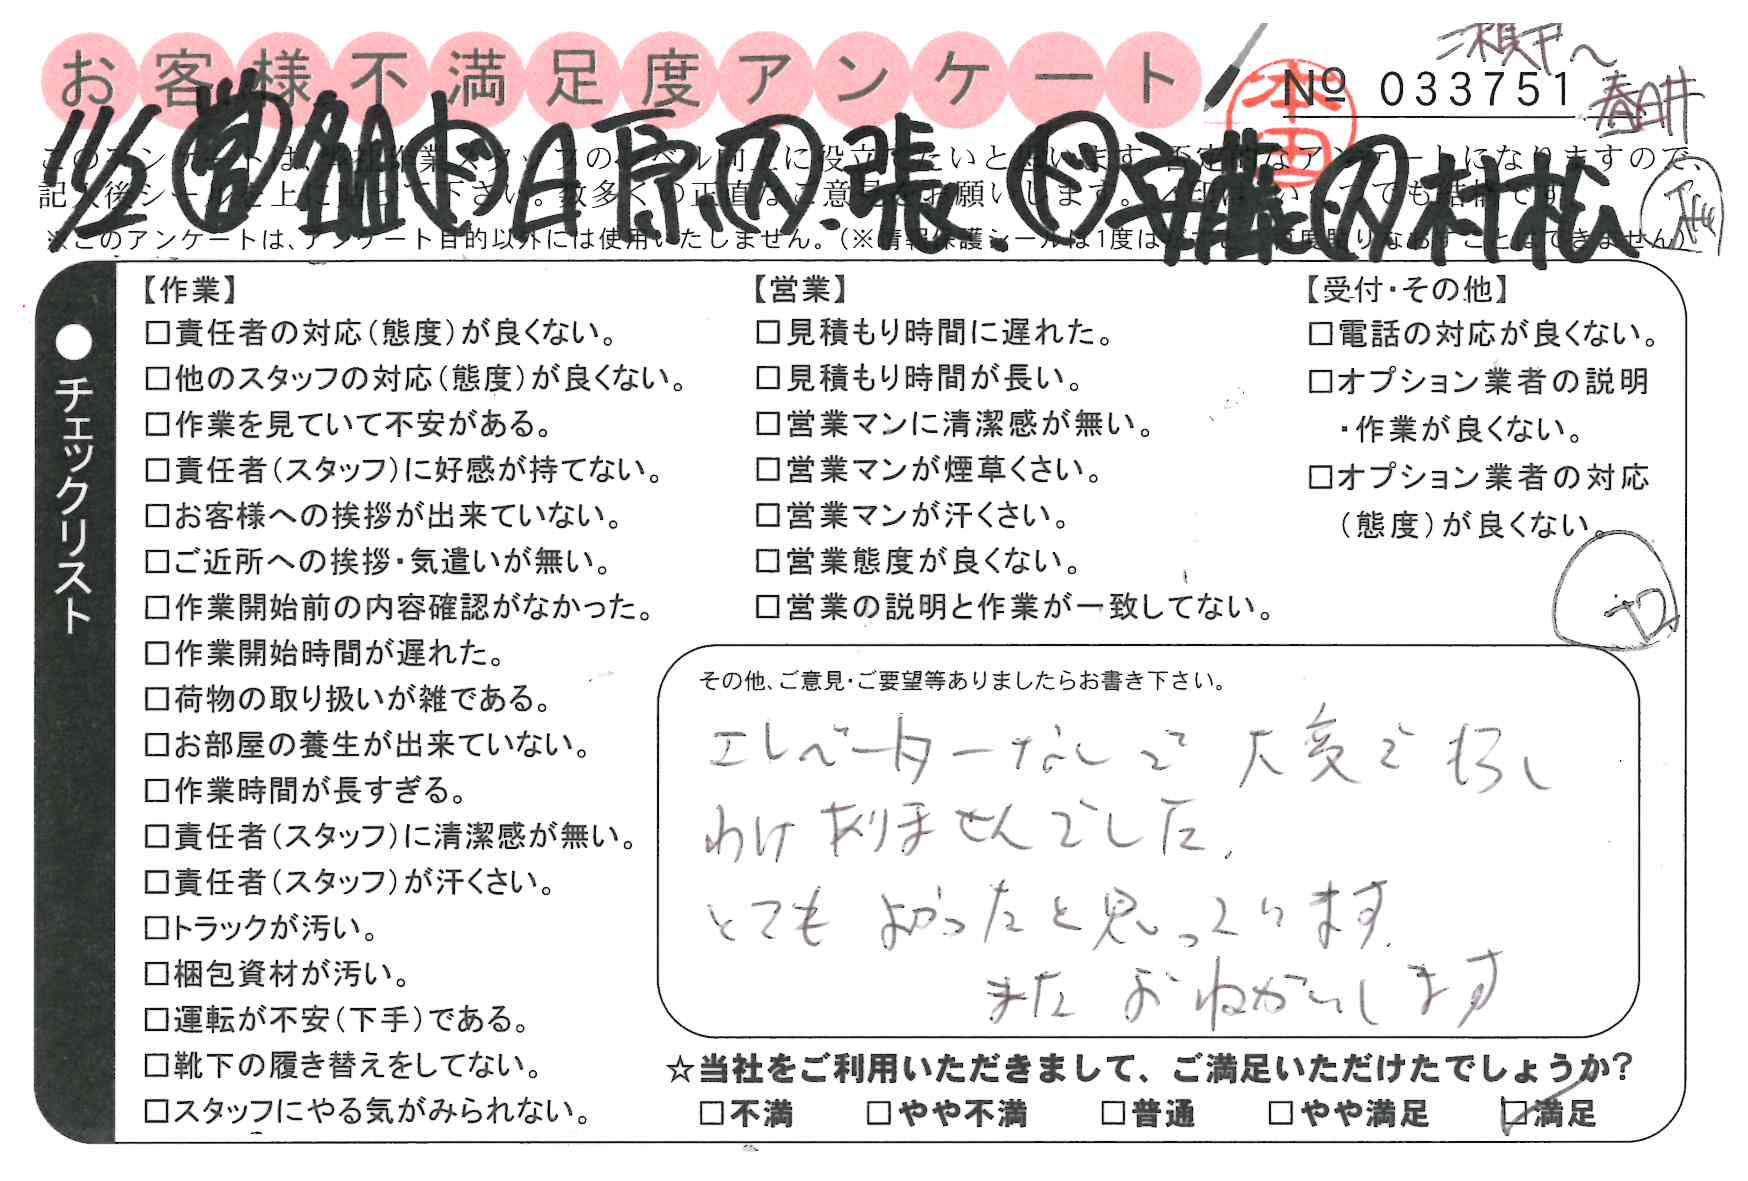 お客様不満足度アンケート
瀬戸〜
春日井
本田
№ 033751
11/2 営 組 ド 日原、内 張 ド 安藤 内 村松
このアンケートは、
※このアンケートは、アンケート目的以外には使用いたしません。
●チェックリスト
【作業】
□責任者の対応(態度)が良くない。
□他のスタッフの対応(態度)が良くない。
□作業を見ていて不安がある。
□責任者(スタッフ)に好感が持てない。
□お客様への挨拶が出来ていない。
□ご近所への挨拶・気遣いが無い。
□作業開始前の内容確認がなかった。
□作業開始時間が遅れた。
□荷物の取り扱いが雑である。
□お部屋の養生が出来ていない。
□作業時間が長すぎる。
□責任者(スタッフ)に清潔感が無い。
□責任者(スタッフ)が汗くさい。
□トラックが汚い。
□梱包資材が汚い。
□運転が不安(下手)である。
□靴下の履き替えをしてない。
□スタッフにやる気がみられない。
【営業】
□見積もり時間に遅れた。
□見積もり時間が長い。
□営業マンに清潔感が無い。
□営業マンが煙草くさい。
□営業マンが汗くさい。
□営業態度が良くない。
□営業の説明と作業が一致してない。
【受付・その他】
□電話の対応が良くない。
□オプション業者の説明
・作業が良くない。
□オプション業者の対応
(態度)が良くない。
その他、ご意見・ご要望等ありましたらお書き下さい。
エレベーターなしで 大変で もうし
わけ ありませんでした。
とても よかったと思っています。
また おねがいします
☆当社をご利用いただきまして、ご満足いただけたでしょうか?
□不満 □やや不満 □普通 □やや満足 ☑満足